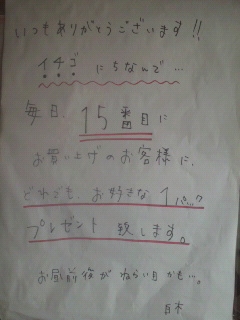 いつもありがとうございます!!
イチゴにちなんで…
毎日、15番目に
お買い上げのお客様に、
どれでも、お好きな1パック
プレゼント致します。
お昼前後がねらい目かも…。